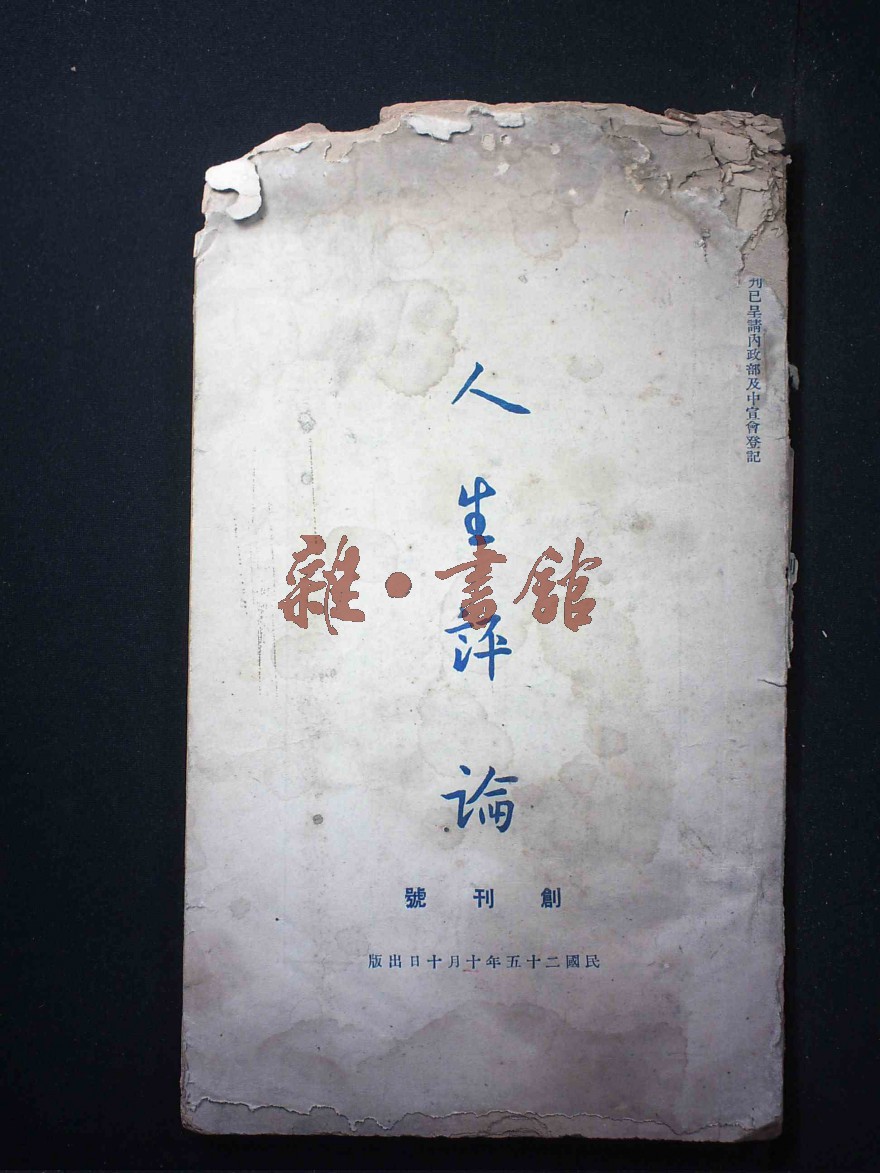 刊已呈請內政部及中宣會登記
人生評論
雜•書館
創刊號
民國二十五年十月十日出版